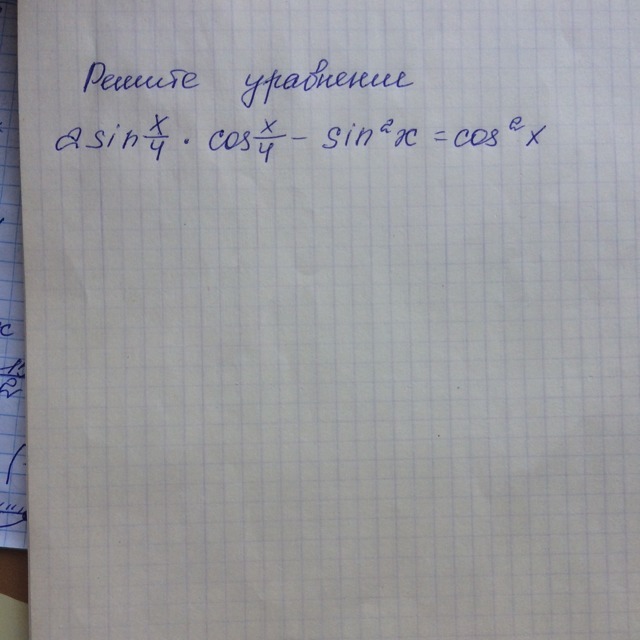 Решите уравнение
2 sin x/4 · cos x/4 − sin²x = cos²x